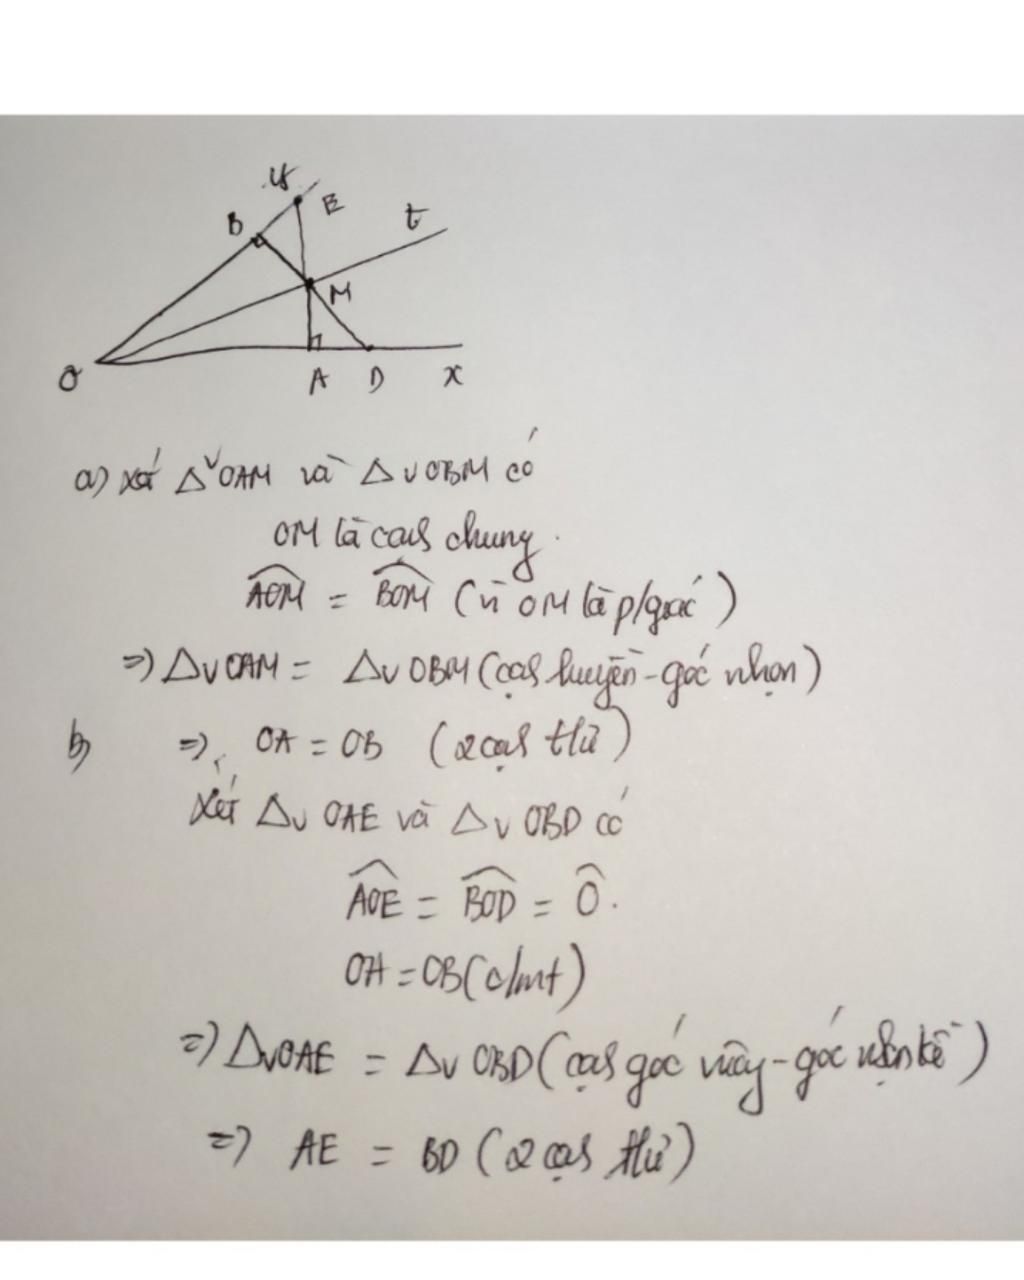 y
E
B
t
M
O
A D x
a) Xét Δv OAM và Δv OBM có
OM là cạnh chung.
AOM = BOM (vì OM là p/giác)
=) Δv OAM = Δv OBM (cạnh huyền - góc nhọn)
b) =) OA = OB (2 cạnh t/ứ)
Xét Δv OAE và Δv OBD có
AOE = BOD = O.
OA = OB (c/mt)
=) Δv OAE = Δv OBD (cạnh góc vuông - góc nhọn kề)
=) AE = BD (2 cạnh t/ứ)